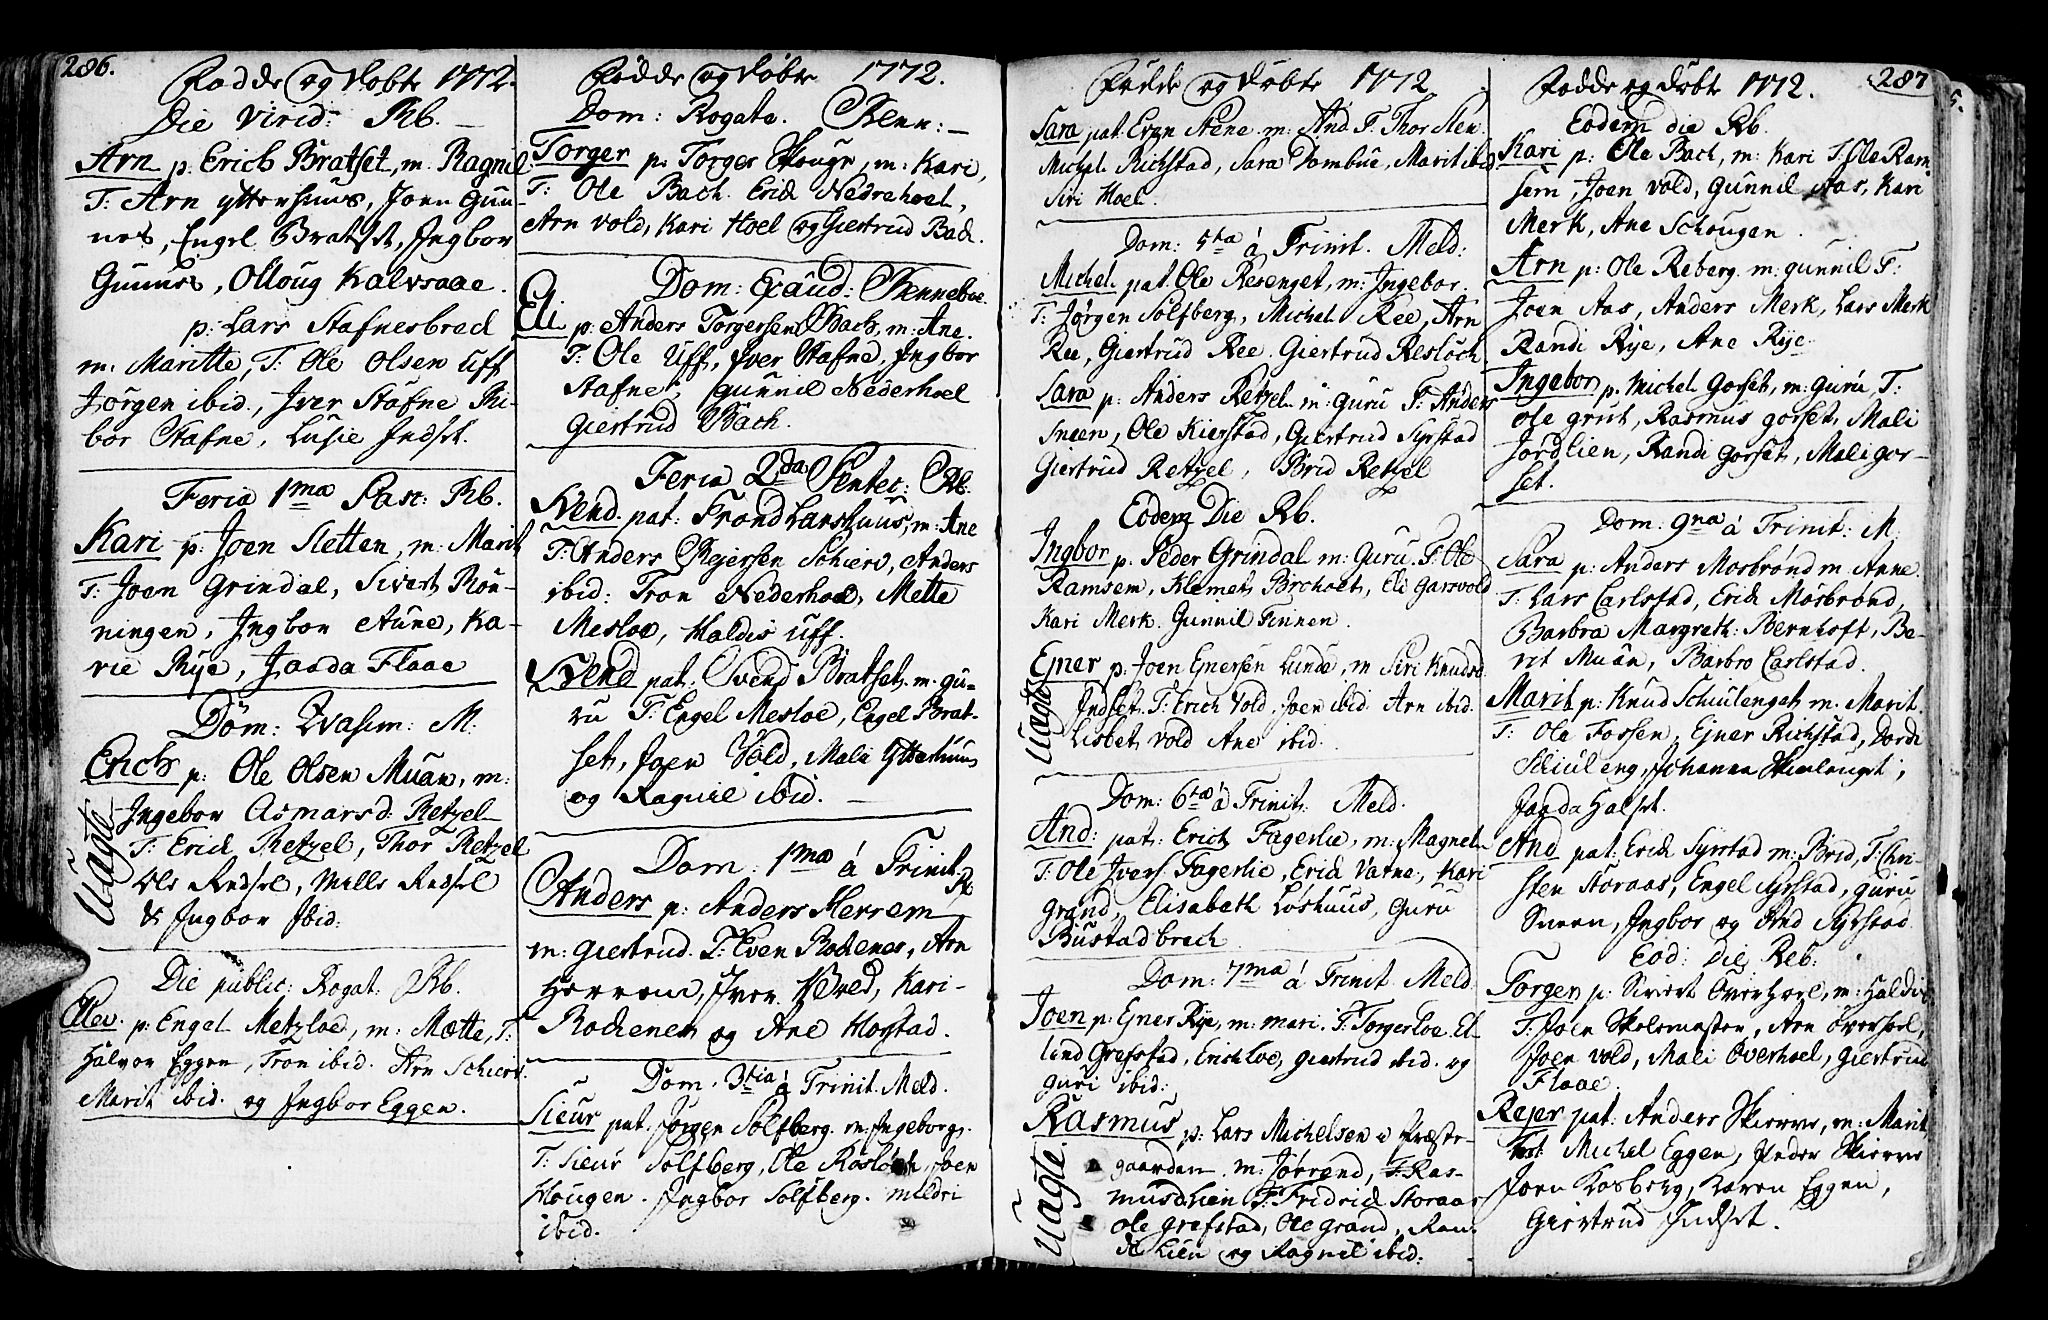 286.
Fødde og døbte 1772.
Die Virid: Rb.
Arn p: Erich Bratset, m. Ragnel
T: Arn ytterhuus, Joen Gun-
nes, Engel Bratset, Ingbor
Gunnes, Olloug Kalvsaae.
p: Lars Stafnesbred
m. Maritte, T: Ole Olsen Uff
Jörgen ibid, Iver Stafne Ri-
bor Stafne, Lusie Indset.
Feria 1ma Pasc: Rb.
Kari p: Joen Sletten, m: Marit
T: Joen Grindal, Sivert Rön-
ningen, Ingbor Aune, Ka-
rie Rye, Jorda Flaae
Dom: Qvasim: M:
Erich p: Ole Olsen Muan, m:
Ingebor Asmarsd: Retzel
T: Erich Retzel, Thor Retzel
Ole Indset, Mille Indset
& Ingbor Ibid:
Uagte
Die public: Rogat: Rb.
Elev. p: Engel Metzloe, m: Mætte, T:
Halvor Eggen, Tron ibid. Arn Schiers
Marit ibid. og Ingbor Eggen.
Fødde og døbte 1772.
Dom: Rogate. Renn:
Torger p: Torger Hougn, m: Kari,
T: Ole Bach. Erich Nedrehoel,
Arn Vold, Kari Hoel og Giertrud Bach.
Dom: Exaud: Renneboe.
Eli p: Anders Torgersen Bach, m: Ane.
T: Ole Uff, Iver Stafne, Ingbor
Stafne, Gunnil Nederhoel
Giertrud Bach.
Feria 2da Pentec: Rb.
Svend. pat: Frond Larshuus, m: Ane
T: Anders Rejersen Schierv, Anders
ibid: Tron Nederhoel, Mette
Mesloe, Haldis Uff.
Svend pat. Svend Bratset. m. Gu-
ru T: Engel Mesloe, Engel Brat-
set, Joen Vold, Mali Ytterhuus
og Ragnil ibid.
Dom: 1ma á Trinit. Rb
Anders p: Anders Herrem
m: Giertrud. T: Even Bochenes, Arn
Herrem, Iver Hoved, Kari
Bochenes og Ane Horstad.
Dom. 3tia á Trinit. Meld.
Sieur pat. Jörgen Solfberg. m. Ingeborg.
T: Sieur Solfberg, Ole Rösloch, Joen
Hougen. Ingbor Solfberg. Mildri
ibid.
Fødde og døbte 1772
Sara, pat. Even Aene. m: And T. Thor Sten.
Michel Richstad, Sara Dombue, Marit ibid
Siri Hoel.
Dom: 5ta á Trinit. Meld:
Michel. pat. Ole Resenget, m: Ingebor.
T: Jörgen Solfberg, Michel Ree, Arn
Ree, Giertrud Ree. Giertrud Reslöch
Sara p: Anders Retzel m: Guru T: Anders
Sneen, Ole Kierstad, Giertrud Syrstad
Giertrud Retzel, Brid Retzel
Eodem Die Rb.
Ingbor p: Peder Grindal m: Guru. T: Ole
Ramsem, Klemet Birchoet, Eli Garsvold
Kari Merk. Gunnil Finnen.
Ejner p: Joen Ejnersen Lunde, m Siri Knudsd.
Indset. T: Erich Vold. Joen ibid. Arn ibid.
Lisbet Vold Ane ibid.
Uagte
Dom: 6ta á Trinit: Meld.
And: pat: Erich Fagerlie, m: Magnel
T: Ole Ivers. Fagerlie, Erich Varne, Kari
Grand, Elisabeth Löshuus, Guru
Bustadbrech
Dom: 7ma á Trinit Meld
Joen p: Ejner Rye, m: Mari. T. Torger Loe El-
lend Grefstad, Erich Loe, Giertrud ibid. og
Guri ibid:
Rasmus p: Lars Michelsen i Præste-
gaarden. m: Jörend, T: Ras-
mus Lien T: Fridrich Storaas
Ole Grefstad, Ole Grand, Ran-
di Lien og Ragnil ibid:
Uagte
287
Fødde og døbt 1772.
Eodem die Rb.
Kari p: Ole Bach, m: Kari T: Ole Ram-
sem, Joen Vold, Gunnil Aas, Kari
Merk, Ane Schougen.
Arn p: Ole Reberg. m: Gunnil T:
Joen Aas, Anders Merk, Lars Merk
Randi Rye, Ane Rye
Ingebor p. Michel Gorset, m: Guru, T:
Ole Grut, Rasmus Gorset, Mali
Jordlien, Randi Gorset, Mali Gor-
set.
Dom: 9na á Trinit: M:
Sara p: Anders Mosbrönd m. Anne.
T: Lars Carlstad, Erich Mosbrönd,
Barbra Margreth: Bernhoft, Be-
rit Muan, Barbro Carlstad.
Marit p: Knud Schiulenget m. Marit.
T: Ole Fossen, Ejner Richstad, Dordi
Schiuleng, Johanna Skiulenget,
Jorda Halset.
And pat: Erich Syrstad m: Brid, T: Chri-
sten Storaas, Engel Syrstad, Guru
Sneen, Ingbor og And Syrstad
Eod: die Reb:
Torger p: Sivert Overhoel, m: Haldis
T: Joen Skolemester, Arn Overhoel,
Joen Vold, Mali Overhoel, Giertrud
Flaae.
Rejer pat: Anders Skierve, m: Marit
Test: Michel Eggen, Peder Skierve
Joen Kosberg, Karen Eggen,
Giertrud Indset.